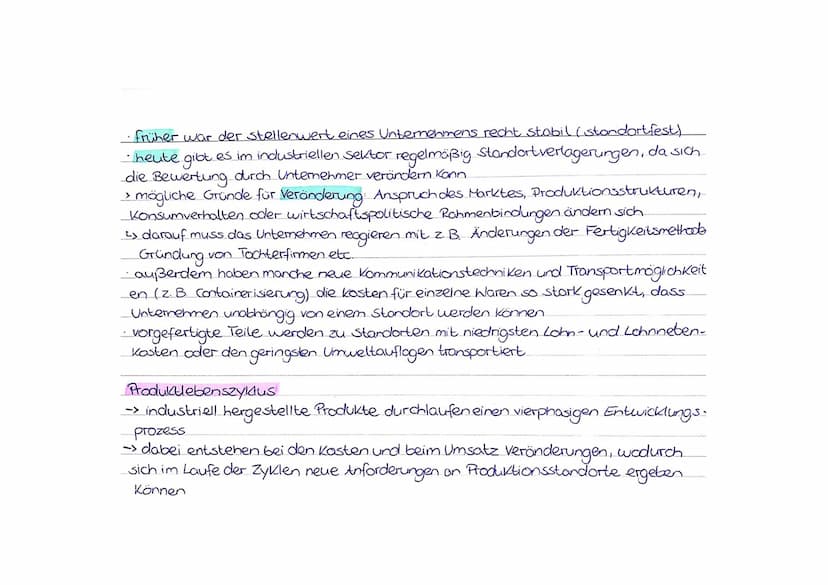 · früher war der stellenwert eines Unternehmens recht stabil (standortfest)
· heute gibt es im industriellen sektor regelmäßig Standortverlagerungen, da sich
die Bewertung durch Unternehmer verändern kann
> mögliche Gründe für Veränderung: Anspruch des Marktes, Produktionsstrukturen,
Konsumverhalten oder wirtschaftspolitische Rahmenbindungen ändern sich
↳ darauf muss das Unternehmen reagieren mit z.B. Änderungen der Fertigkeitsmethode
Gründung von Tochterfirmen etc.
· außerdem haben manche neue Kommunikationstechniken und Transportmöglichkeit
en (z.B. Containerisierung) die Kosten für einzelne Waren so stark gesenkt, dass
Unternehmen unabhängig von einem Standort werden können
· vorgefertigte Teile werden zu Standorten mit niedrigsten Lohn- und Lohnneben-
Kosten oder den geringsten Umweltauflagen transportiert
Produktlebenszyklus
-> industriell hergestellte Produkte durchlaufen einen vierphasigen Entwicklungs-
prozess
-> dabei entstehen bei den Kosten und beim Umsatz Veränderungen, wodurch
sich im Laufe der Zyklen neue Anforderungen an Produktionsstandorte ergeben
Können